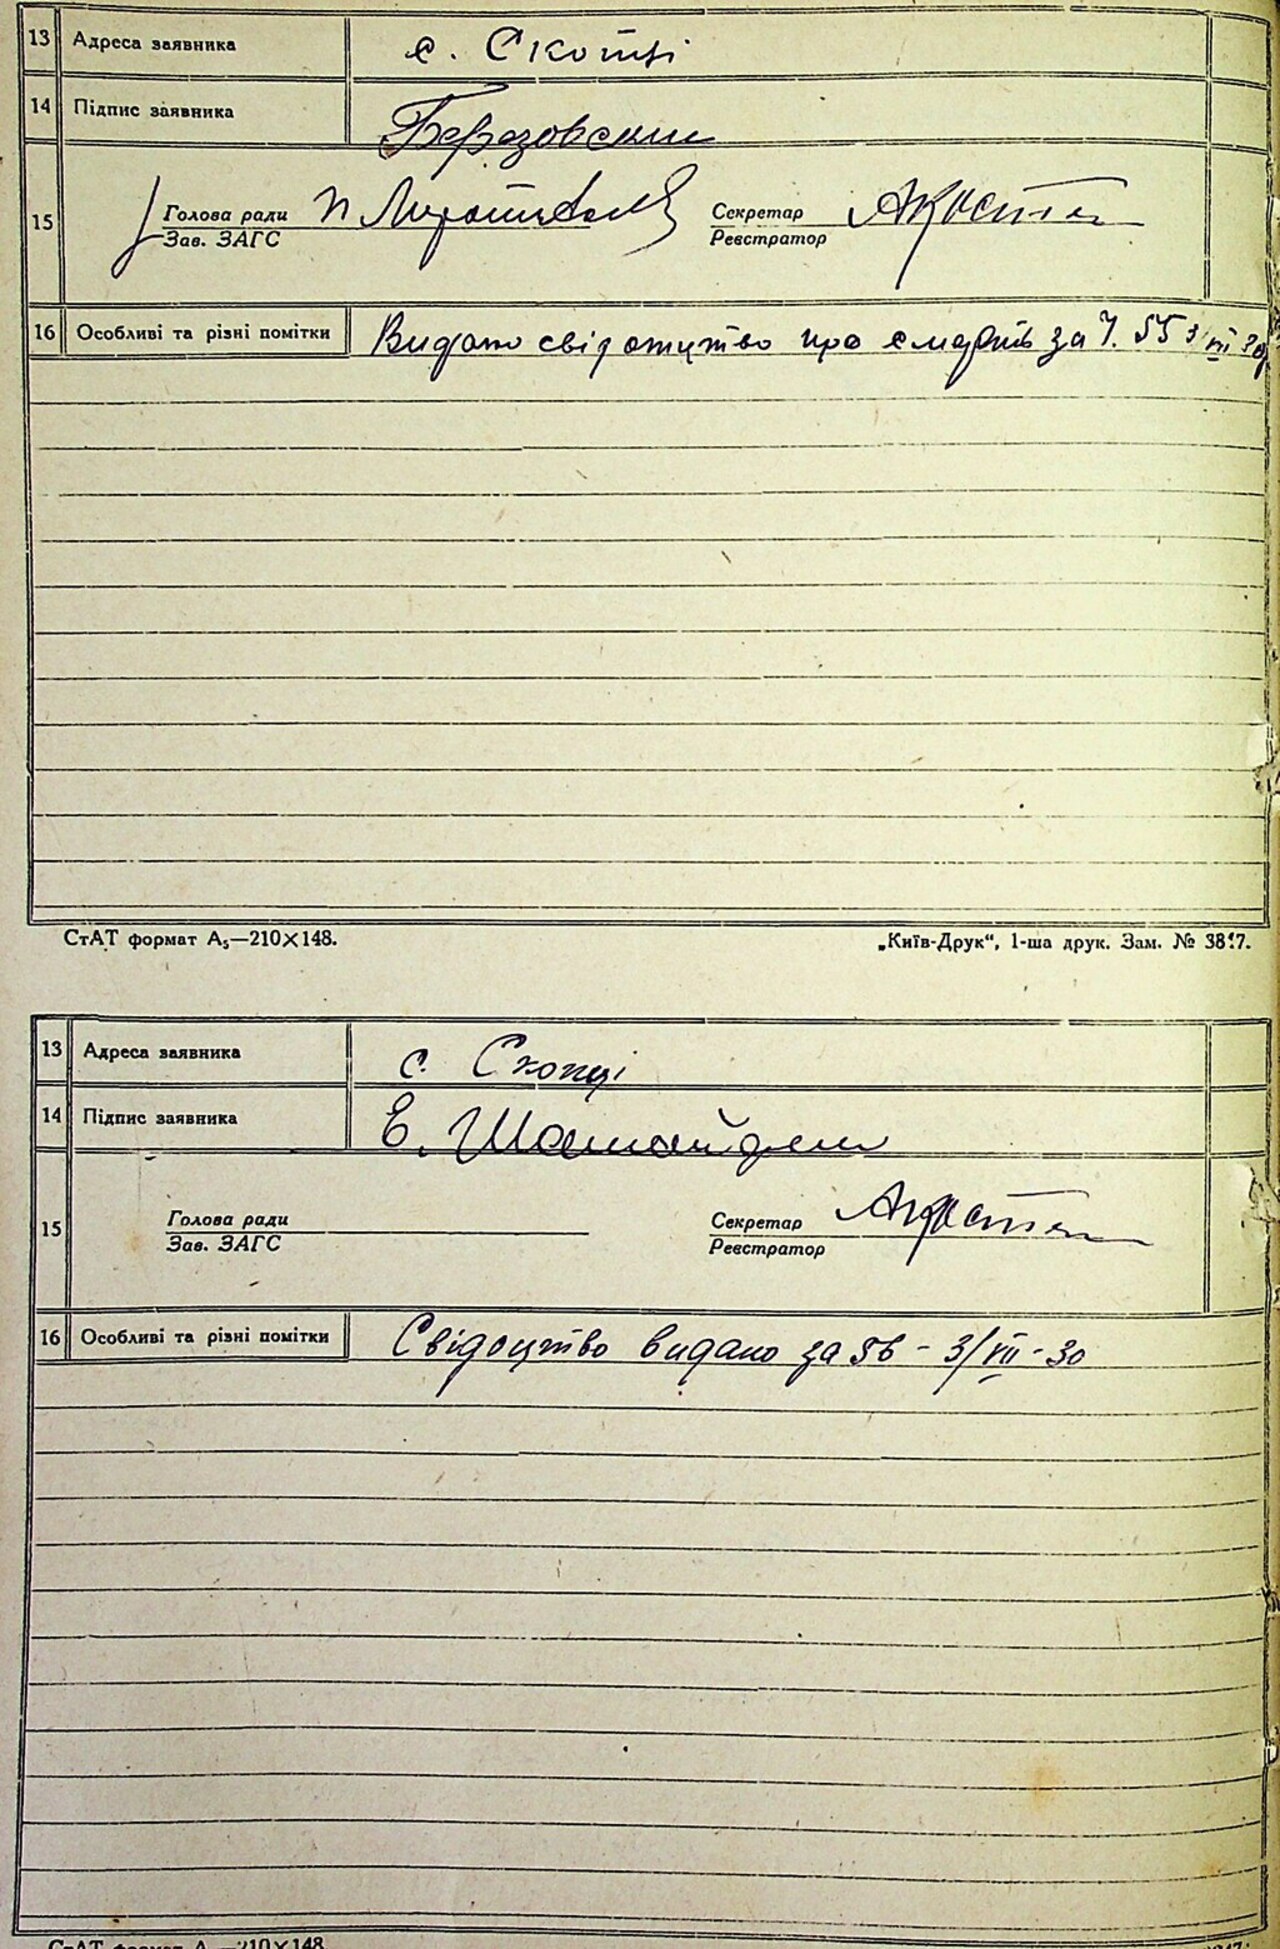 13 Адреса заявника с. Скопці
14 Підпис заявника Березовский
15 Голова ради Секретар
Зав. ЗАГС Реєстратор
16 Особливі та різні помітки Видано свідоцтво про смерть за Ч. 55 3/VII 30
СтАТ формат А₅—210×148. „Київ-Друк“, 1-ша друк. Зам. № 3817.
13 Адреса заявника с. Скопці
14 Підпис заявника Е.
15 Голова ради Секретар
Зав. ЗАГС Реєстратор
16 Особливі та різні помітки Свідоцтво видано за 56 - 3/VII - 30
СтАТ формат А₅—210×148.